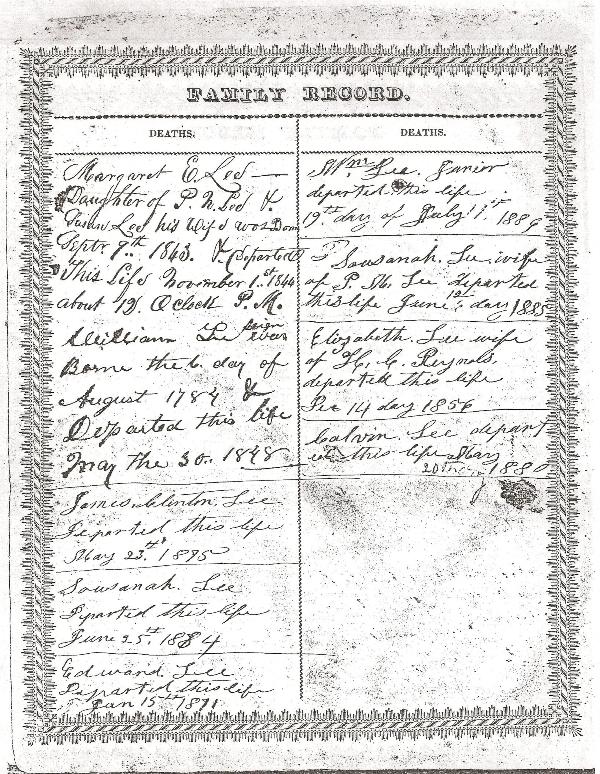 FAMILY RECORD.
DEATHS.
Margaret E. Lee
Daughter of P. N. Lee &
Susan Lee his Wife was Born
Septr 9th 1843. & Departed
This Life November 1st 1844
about 12 O Clock P. M.
William Lee
Borne the 6 day of
August 1784 &
Departed this life
may the 30.. 1848
James Clinton. Lee
Departed this life
May 23. 1895
Sousanah. Lee
Departed this life
June 25th 1884
Edward Lee
Departed this life
Jan 15th 1811
DEATHS.
Wm Lee. Junior
departed this life
19th day of July 1886
Sousanah. Lee wife
of P. N. Lee departed
this life June day 1885
Elizabeth. Lee wife
of H. C. Reynols.
departed this life
14 day 1856
Calvin. Lee depart
ed this life May
20 1880